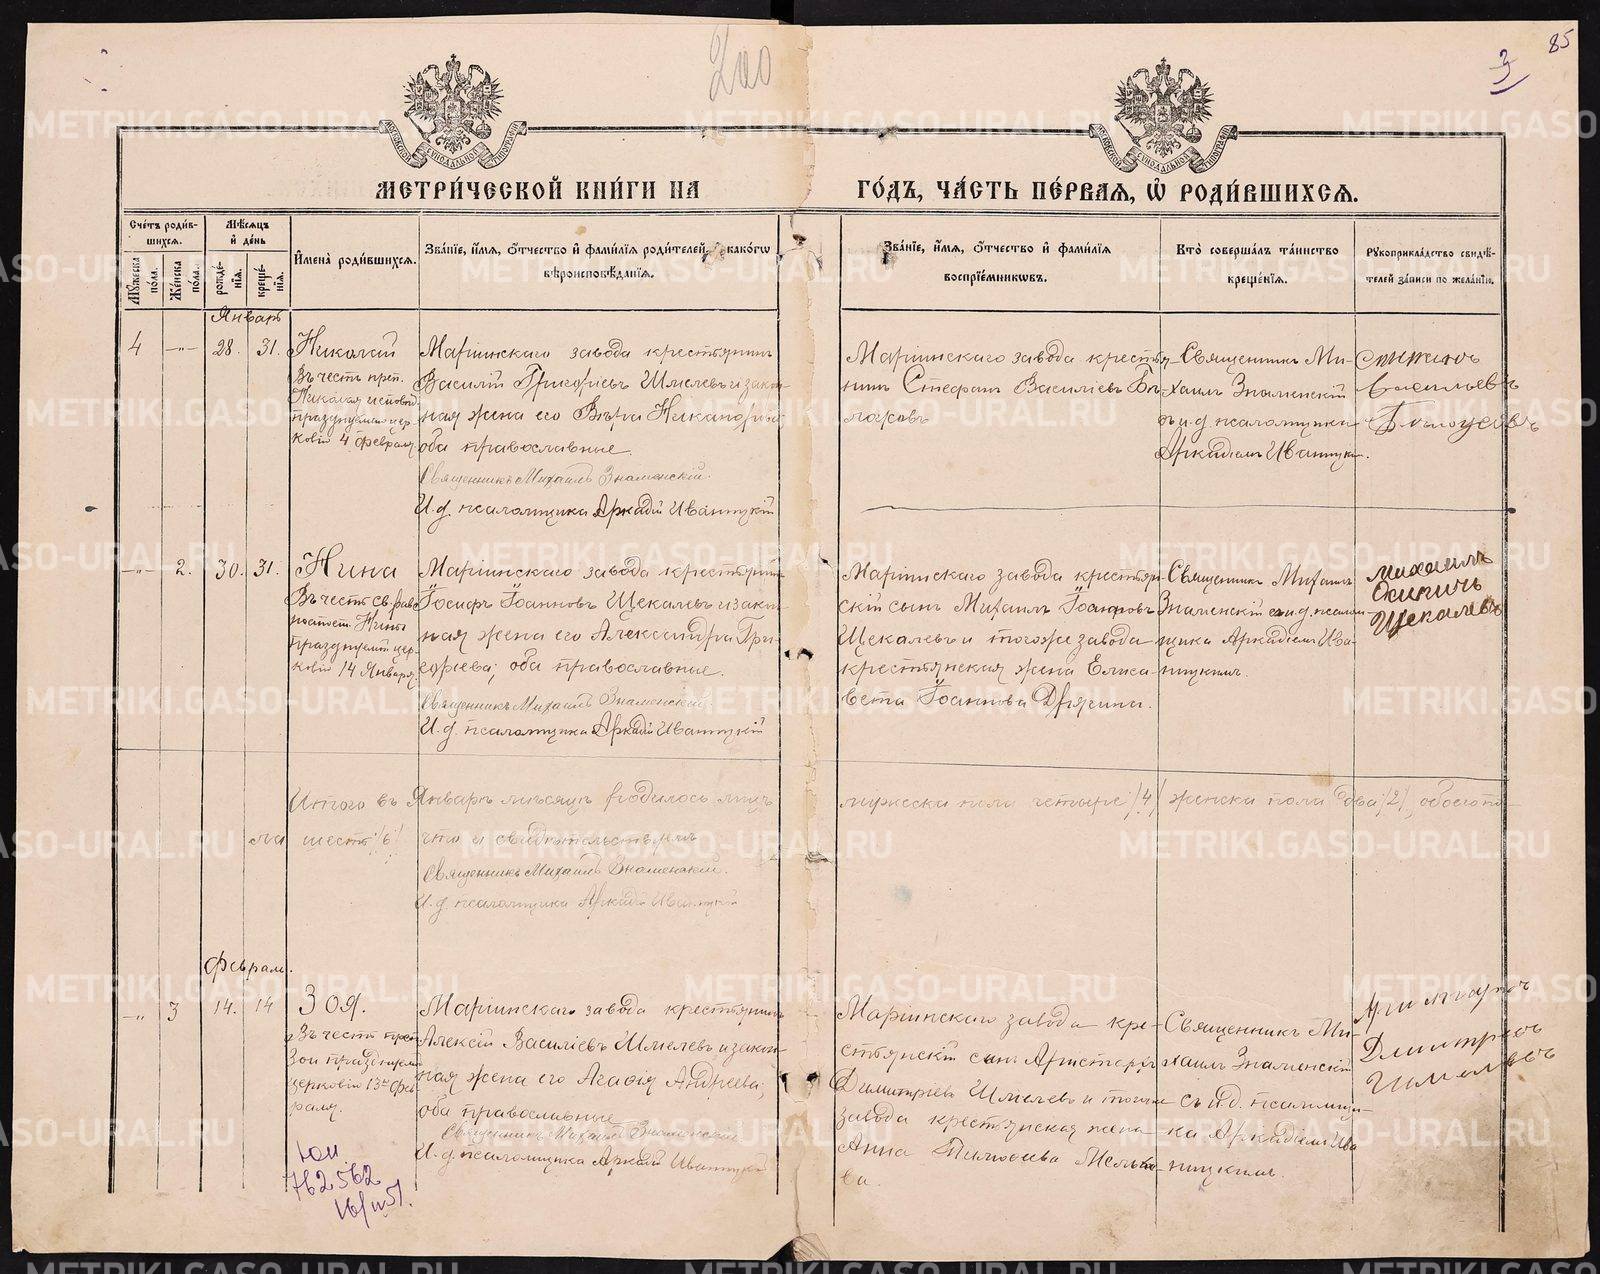 200
85
3
МОСКОВСКОЙ СѴНОДАЛЬНОЙ ТИПОГРАФІИ
МОСКОВСКОЙ СѴНОДАЛЬНОЙ ТИПОГРАФІИ
МЕТРИ́ЧЕСКОЙ КНИ́ГИ НА
ГО́ДЪ, ЧА́СТЬ ПЕ́РВАЯ, Ѽ РОДИ́ВШИХСЯ.
Сче́тъ роди́в-
шихся.
Мѣ́сяцъ
и де́нь
Му́жеска
по́ла.
Же́нска
по́ла.
рожде́-
нія.
креще́-
нія.
Имена̀ роди́вшихся.
Зва́ніе, и́мя, о́тчество и фами́лія роди́телей, и како́гѡ
вѣроисповѣ́данія.
Зва́ніе, и́мя, о́тчество и фами́лія
воспріе́мникѡвъ.
Кто̀ соверша́лъ та́инство
креще́нія.
Рукоприкла́дство свидѣ́-
телей за́писи по жела́нію.
Январь
4 -"- 28. 31.
Николай
Въ честь преп.
Николая исповѣд.
празднуемаго цер-
ковію 4 февраля.
Маріинскаго завода крестьянинъ
Василій Григорьевъ Шмелевъ и закон-
ная жена его Вѣра Никанорова
оба православные.
Священникъ Михаилъ Знаменскій.
И. д. псаломщика Аркадій Иваницкій
Маріинскаго завода крестья-
нинъ Стефанъ Василіевъ Бѣ-
лоусовъ
Священникъ Ми-
хаилъ Знаменскій
съ и. д. псаломщика
Аркадіемъ Иваницким.
Степанъ
Васильевъ
Белоусовъ
-"- 2. 30. 31.
Нина
Въ честь св. рав-
ноапост. Нины
празднуемой цер-
ковію 14 Января
Маріинскаго завода крестьянинъ
Іосифъ Іоанновъ Щекалевъ и закон-
ная жена его Александра Гри-
горьева; оба православные.
Священникъ Михаилъ Знаменскій.
И. д. псаломщика Аркадій Иваницкій
Маріинскаго завода крестьян-
скій сынъ Михаилъ Іоанновъ
Щекалевъ и тогоже завода
крестьянская жена Елиса-
вета Іоаннова
Священникъ Михаилъ
Знаменскій съ и. д. псалом-
щика Аркадіемъ Ива-
ницкимъ.
Михаилъ
Щекалевъ
Итого въ Январѣ мѣсяцѣ родилось лицъ
мужеска пола четыре /4/ женска пола два /2/, обоего по-
ла шесть /6/ что и свидѣтельствуемъ
Священникъ Михаилъ Знаменскій.
И. д. псаломщика Аркадій Иваницкій
Февраль.
-"- 3 14. 14
Зоя.
Въ честь преп.
Зои празднуем.
церковію 13го Фев-
раля.
Маріинскаго завода крестьянинъ
Алексій Василіевъ Шмелевъ и закон-
ная жена его Агафія Андреева;
оба православные
Священникъ Михаилъ Знаменскій
И. д. псаломщика Аркадій Иваницкій
Маріинскаго завода кре-
стьянскій сынъ
Димитріевъ Шмелевъ и тогоже
завода крестьянская жена
Анна Тимофеева Мелько-
ва.
Священникъ Ми-
хаилъ Знаменскій
съ и. д. псаломщи-
ка Аркадіемъ Ива-
ницкимъ.
Дмитріевъ
Шмелевъ
762562
METRIKI.GASO-URAL.RU